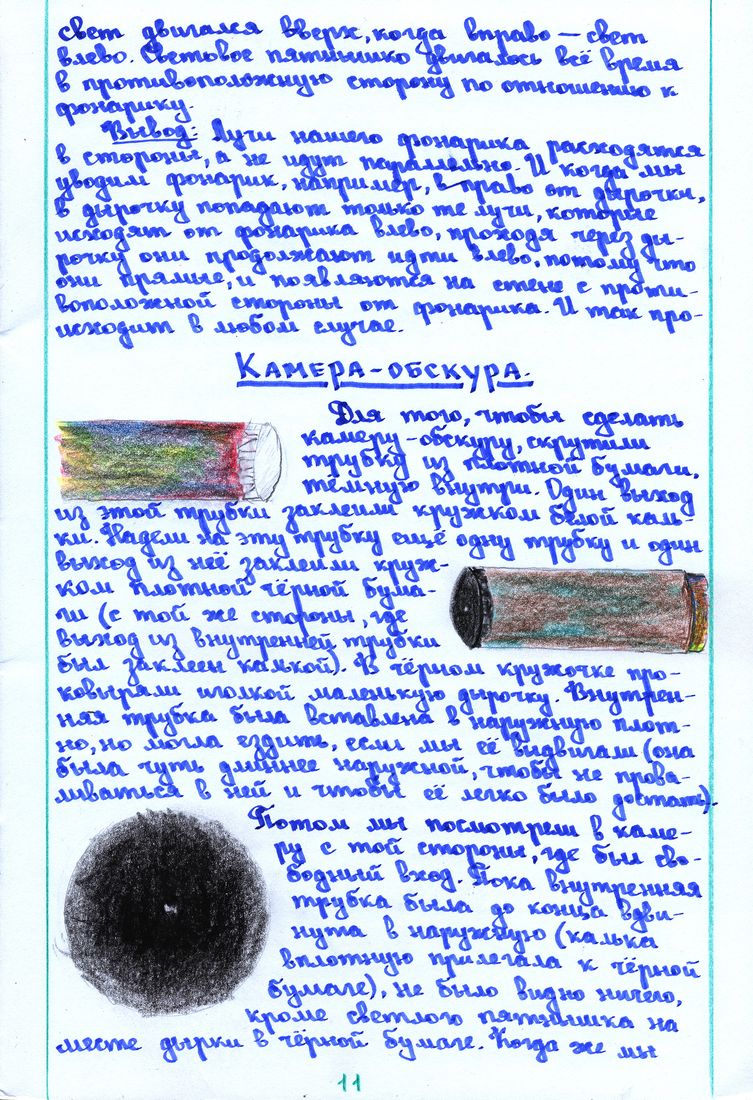 свет двигался вверх, когда вправо — свет
влево. Световое пятнышко двигалось всё время
в противоположную сторону по отношению к
фонарику.
Вывод: Лучи нашего фонарика расходятся
в стороны, а не идут параллельно. И когда мы
уводим фонарик, например, вправо от дырочки,
в дырочку попадают только те лучи, которые
исходят от фонарика влево, проходя через ды-
рочку они продолжают идти влево, потому что
они прямые, и появляются на стене с проти-
воположной стороны от фонарика. И так про-
исходит в любом случае.
Камера-обскура.
Для того, чтобы сделать
камеру-обскуру, скрутили
трубку из плотной бумаги,
тёмную внутри. Один выход
из этой трубки заклеили кружком белой каль-
ки. Надели на эту трубку ещё одну трубку и один
выход из неё заклеили круж-
ком плотной чёрной бума-
ги (с той же стороны, где
выход из внутренней трубки
был заклеен калькой). В чёрном кружочке про-
ковыряли иголкой маленькую дырочку. Внутрен-
няя трубка была вставлена в наружную плот-
но, но могла ездить, если мы её выдвигали (она
была чуть длиннее наружной, чтобы не прова-
ливаться в ней и чтобы её легко было достать).
Потом мы посмотрели в каме-
ру с той стороны, где был сво-
бодный вход. Пока внутренняя
трубка была до конца вдви-
нута в наружную (калька
вплотную прилегала к чёрной
бумаге), не было видно ничего,
кроме светлого пятнышка на
месте дырки в чёрной бумаге. Когда же мы
11